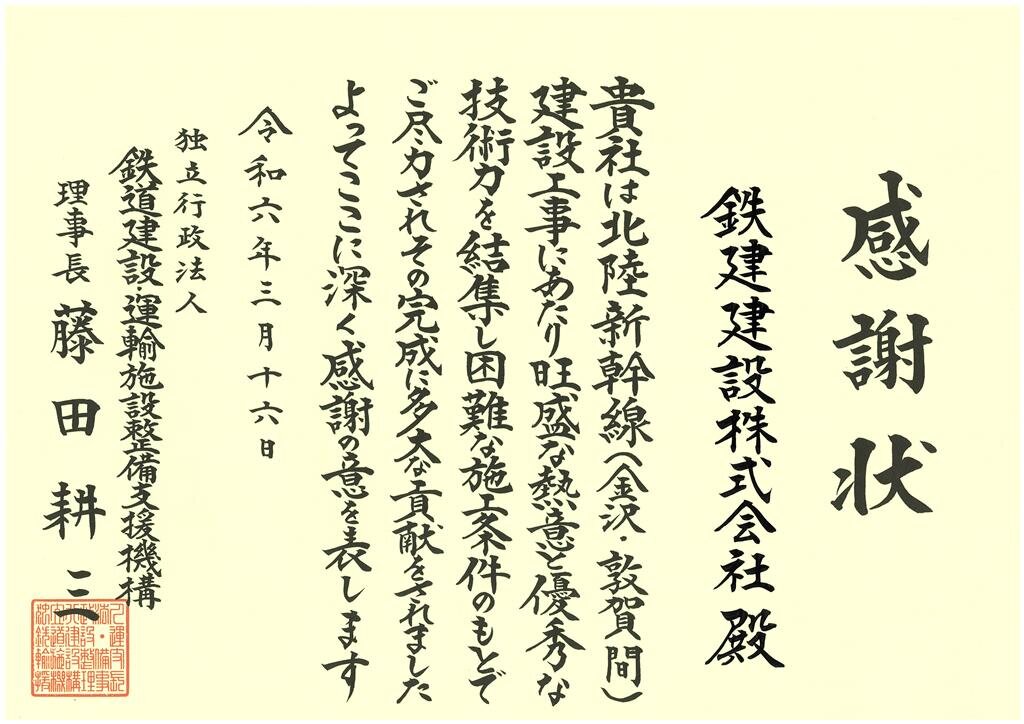 感謝状
鉄建建設株式会社 殿
貴社は北陸新幹線(金沢・敦賀間)
建設工事にあたり旺盛な熱意と優秀な
技術力を結集し困難な施工条件のもとで
ご尽力されその完成に多大な貢献をされました
よってここに深く感謝の意を表します
令和六年三月十六日
独立行政法人
鉄道建設・運輸施設整備支援機構
理事長 藤田耕三